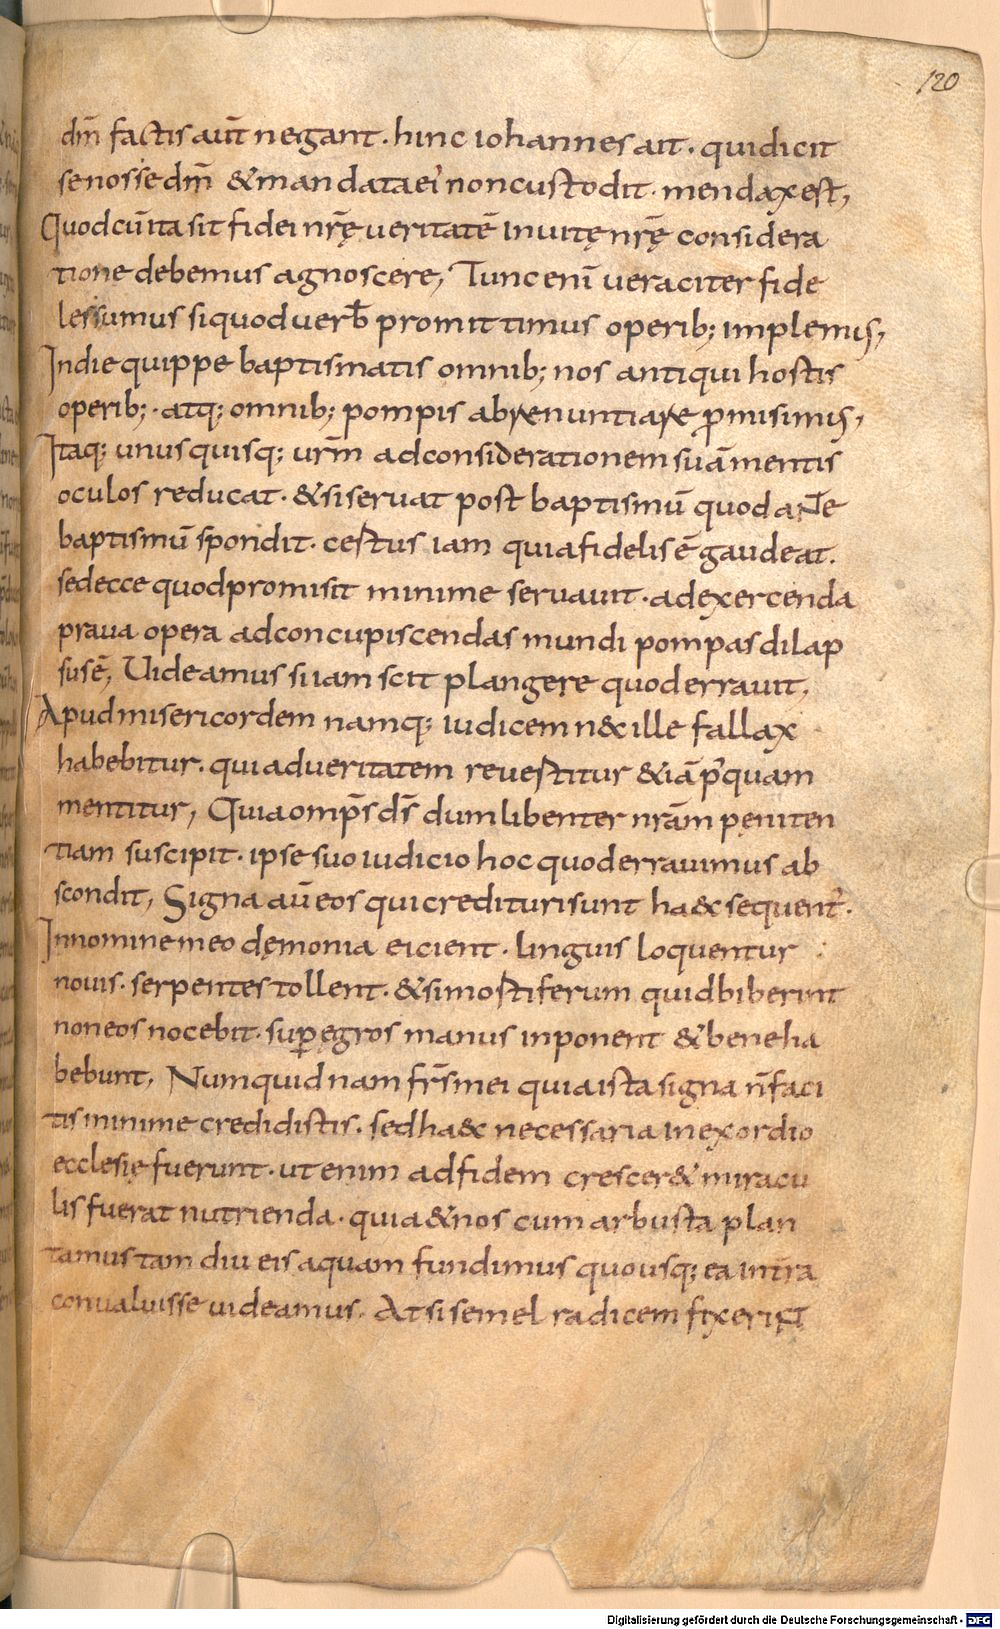 120
dm̄ factis aut̄ negant · hinc iohannes ait · qui dicit
se nosse dm̄ & mandata ei' non custodit · mendax est,
Quod cū ita sit fidei nrę̄ ueritatē In uitę nrę̄ considera
tione debemus agnoscere, Tunc enī ueraciter fide
les sumus si quod uerb̄ promittimus operib; implemus,
In die quippe baptismatis omnib; nos antiqui hostis
operib; · atq; omnib; pompis abrenuntiare p̄misimus,
Itaq; unusquisq; urm̄ ad considerationem suā mentis
oculos reducat · & si seruat post baptismū quod ante
baptismū spondit · certus iam quia fidelis ē gaudeat.
sed ecce quod promisit minime seruauit · ad exercenda
praua opera ad concupiscendas mundi pompas dilap
sus ē, Uideamus si iam scit plangere quod errauit,
Apud misericordem namq; iudicem n& ille fallax
habebitur · qui ad ueritatem reuertitur & iā p'quam
mentitur, Quia omps̄ ds̄ dum libenter nrām peniten
tiam suscipit · ipse suo iudicio hoc quod errauimus ab
scondit, Signa aū eos qui credituri sunt haec sequent'.
In nomine meo dęmonia eicient · linguis loquentur
nouis · serpentes tollent · & si mortiferum quid biberint
non eos nocebit · sup̱ ęgros manus inponent & bene ha
bebunt, Numquidnam frs̄ mei quia ista signa n̄ faci
tis minime credidistis · sed haec necessaria In exordio
ecclesię fuerunt · ut enim ad fidem crescer& miracu
lis fuerat nutrienda · quia & nos cum arbusta plan
tamus tam diu eis aquam fundimus quousq; ea in trā
conualuisse uideamus · At si semel radicem fixerint
Digitalisierung gefördert durch die Deutsche Forschungsgemeinschaft - DFG